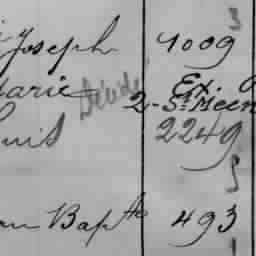 Joseph 1009
Marie Décédé Ex. a
2 - St. Méen
Louis 2249
Jean Bapte 493